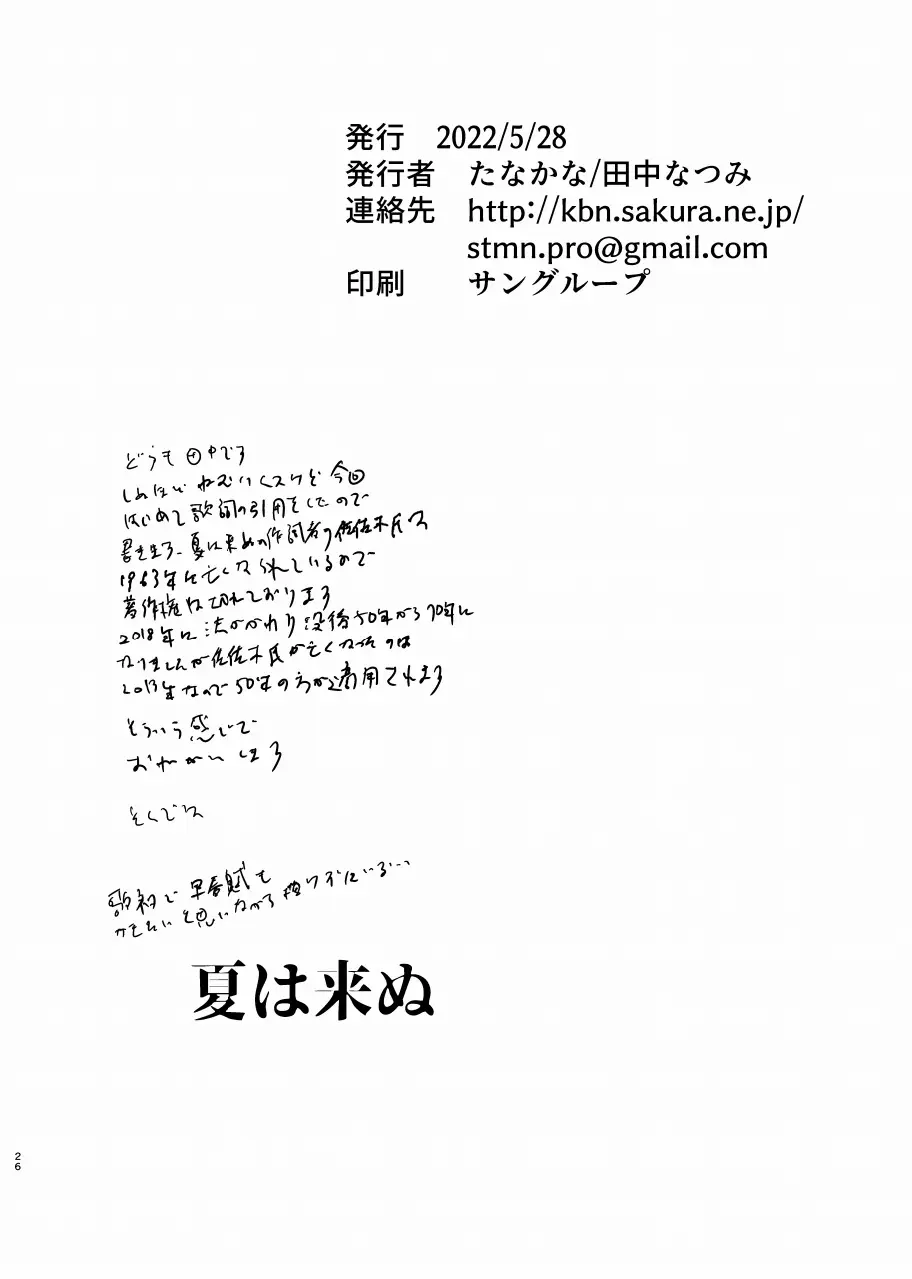 発行 2022/5/28
発行者 たなかな/田中なつみ
連絡先 http://kbn.sakura.ne.jp/
stmn.pro@gmail.com
印刷 サングループ
どうも田中です
しぬほどねむいですけど今回
はじめて歌詞の引用をしたので
書きます、夏は来ぬの作詞者の佐佐木氏は
1963年に亡くなられているので
著作権は切れております
2018年に法がかわり没後50年から70年に
なりましたが佐佐木氏が亡くなったのは
2013年なので50年の方が適用されます
そういう感じで
おねがいします
そんでは
早春賦も
と思いながら
夏は来ぬ
26